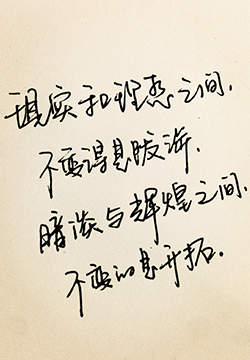 现实和理想之间,
不变得是跋涉,
暗淡与辉煌之间,
不变的是开拓.